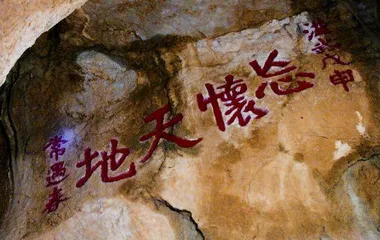 洪武戊申
忘懷天地
常遇春